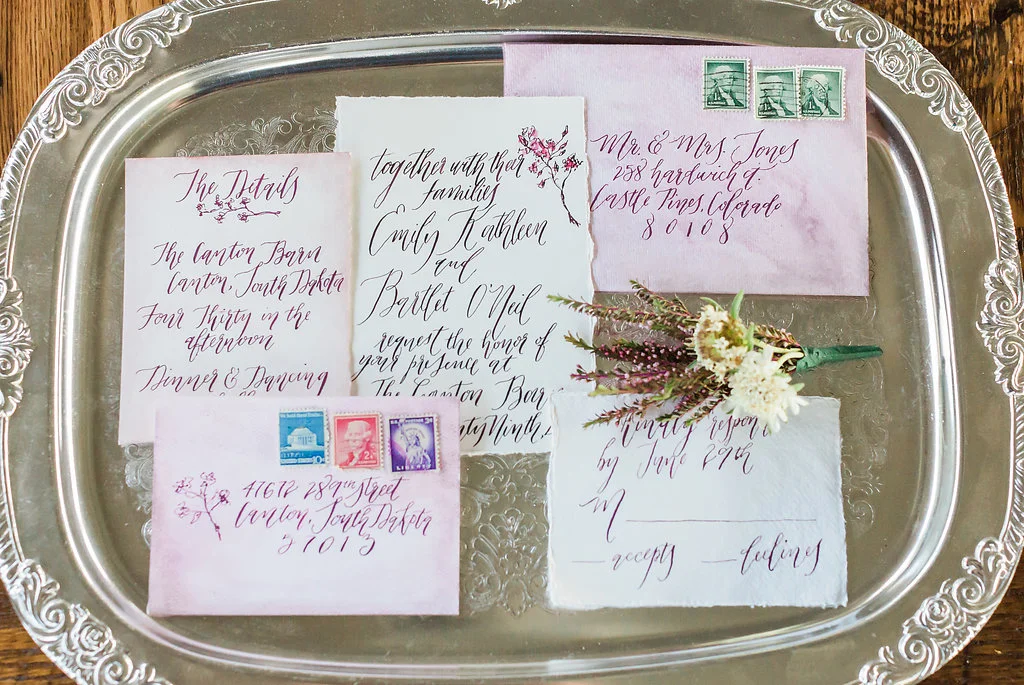 The Details
The Canton Barn
Canton, South Dakota
Four Thirty in the
afternoon
Dinner & Dancing
together with their
families
Emily Kathleen
and
Bartlet O'Neil
request the honor of
your presence at
The Canton Bar
Ninth,
Mr. & Mrs. Jones
258 hardwick ct.
Castle Pines, Colorado
80108
47672 289th Street
Canton, South Dakota
57013
10c
2¢
U.S. POSTAGE 3¢
LIBERTY
Kindly respond
by June 29th
M
accepts declines